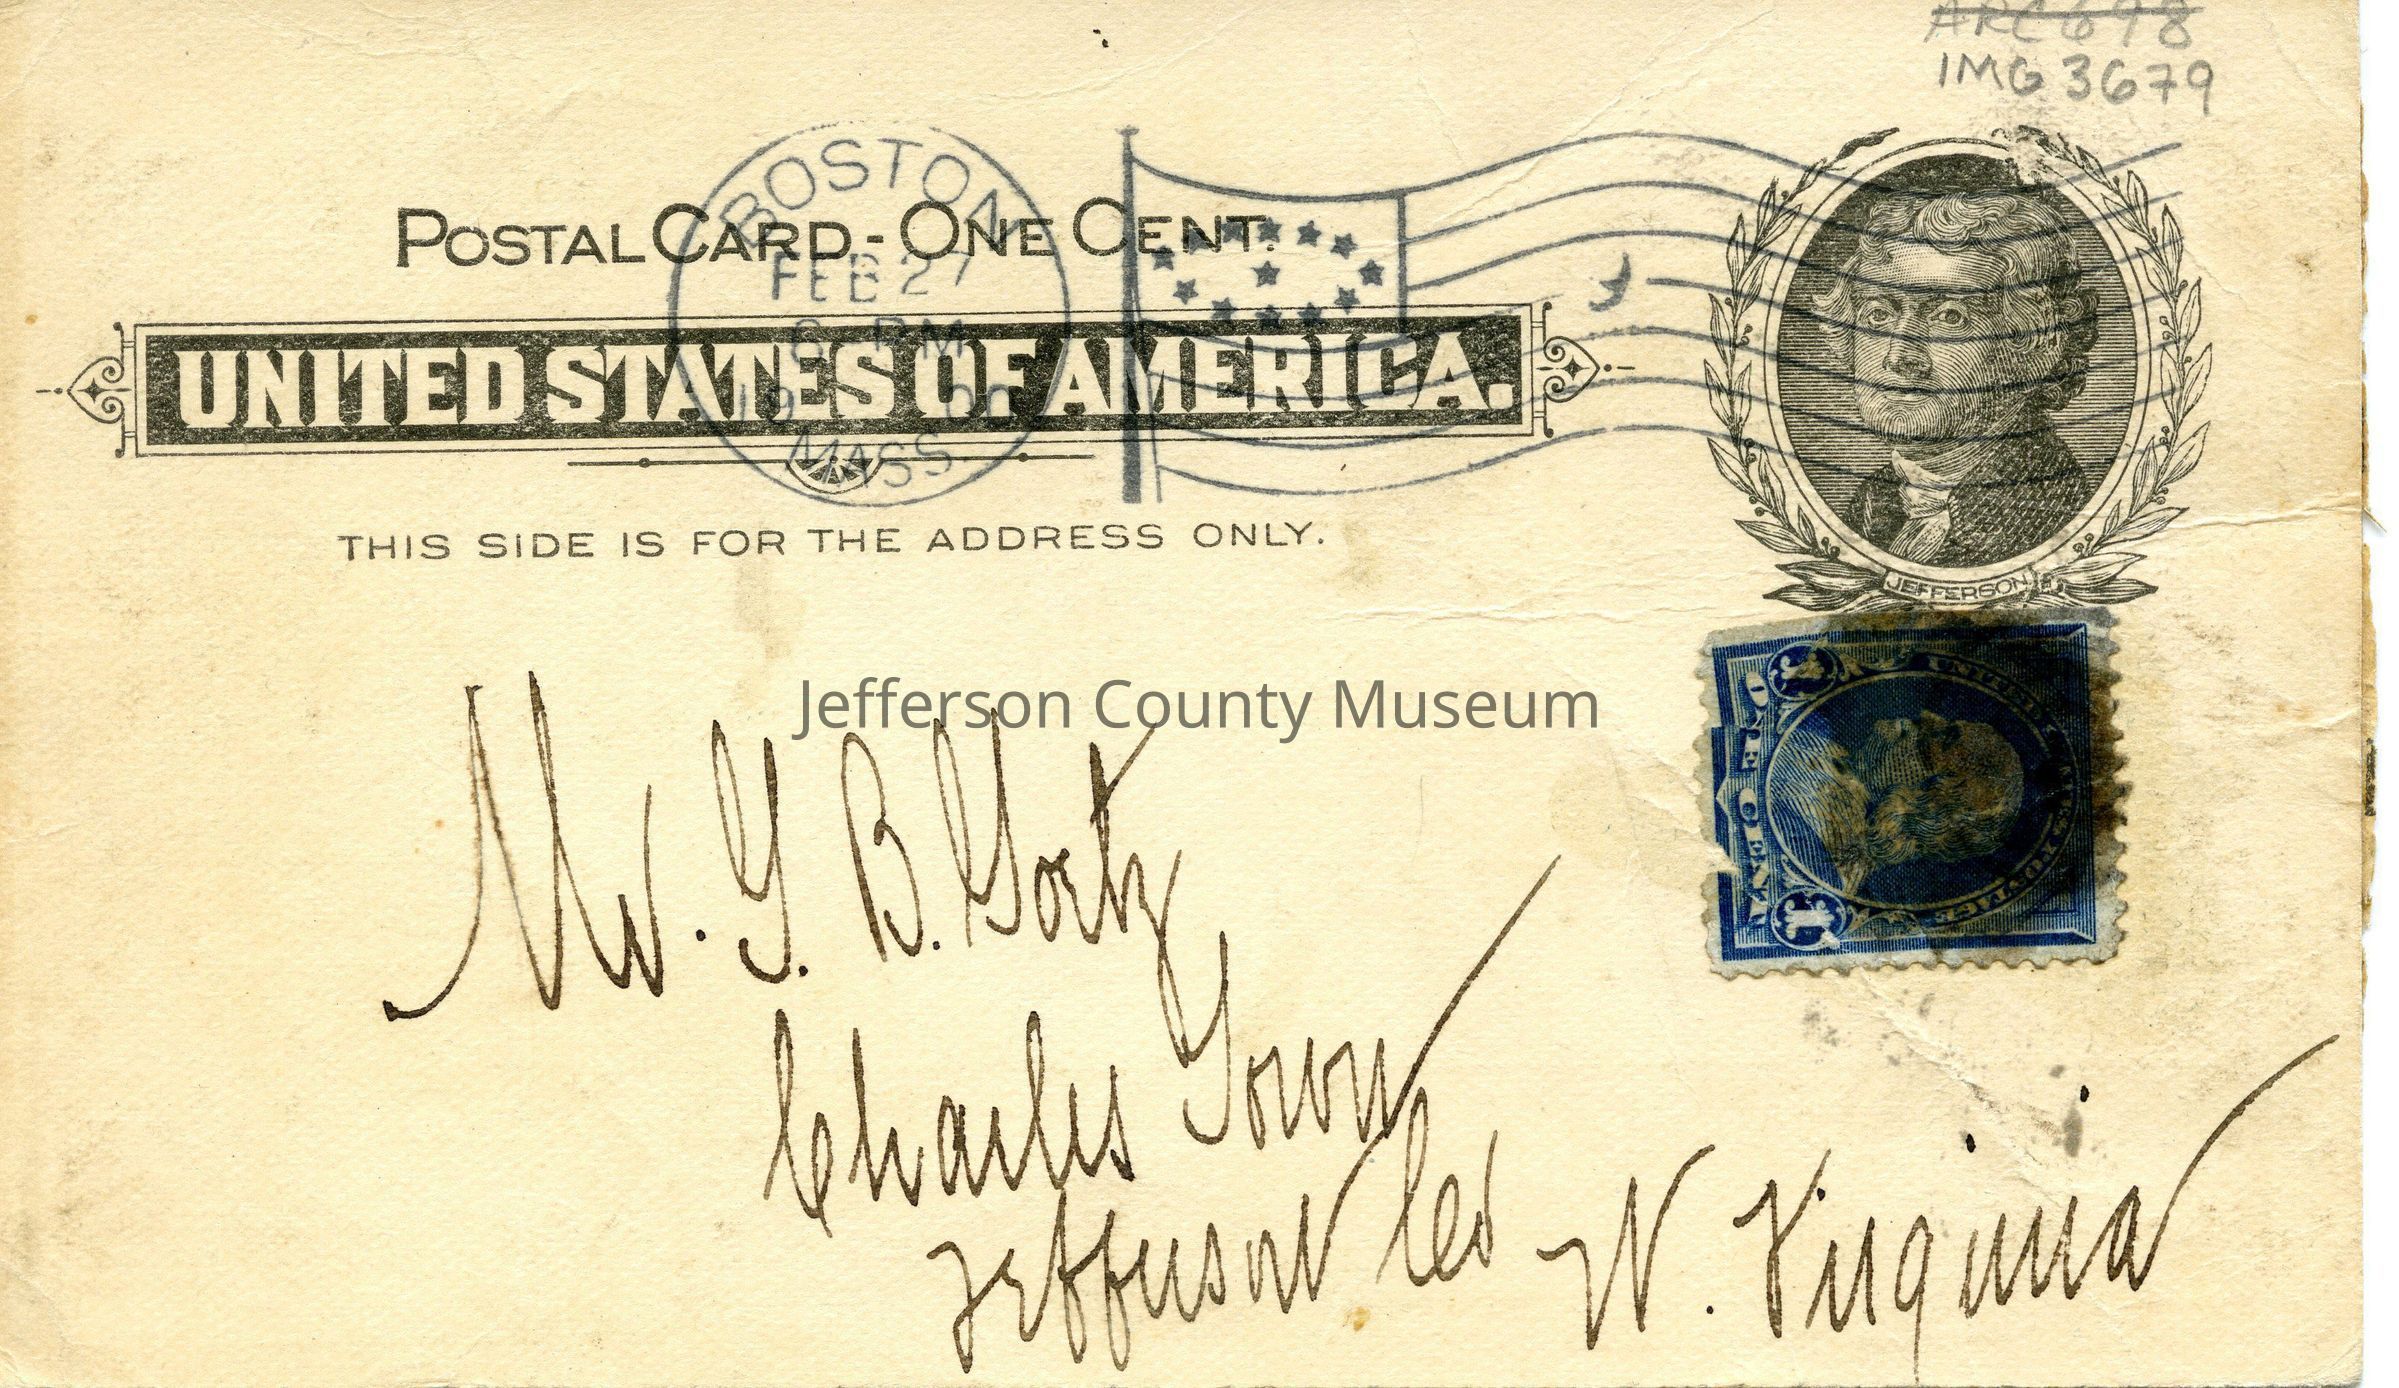 ARC 698
IMG 3679
BOSTON
FEB 27
PM
MASS
POSTAL CARD - ONE CENT.
UNITED STATES OF AMERICA.
THIS SIDE IS FOR THE ADDRESS ONLY.
JEFFERSON
UNITED STATES POSTAGE
ONE CENT
1 1
Jefferson County Museum
Mr. G. B. Goetz
Charles Town
Jefferson Co
W. Virginia